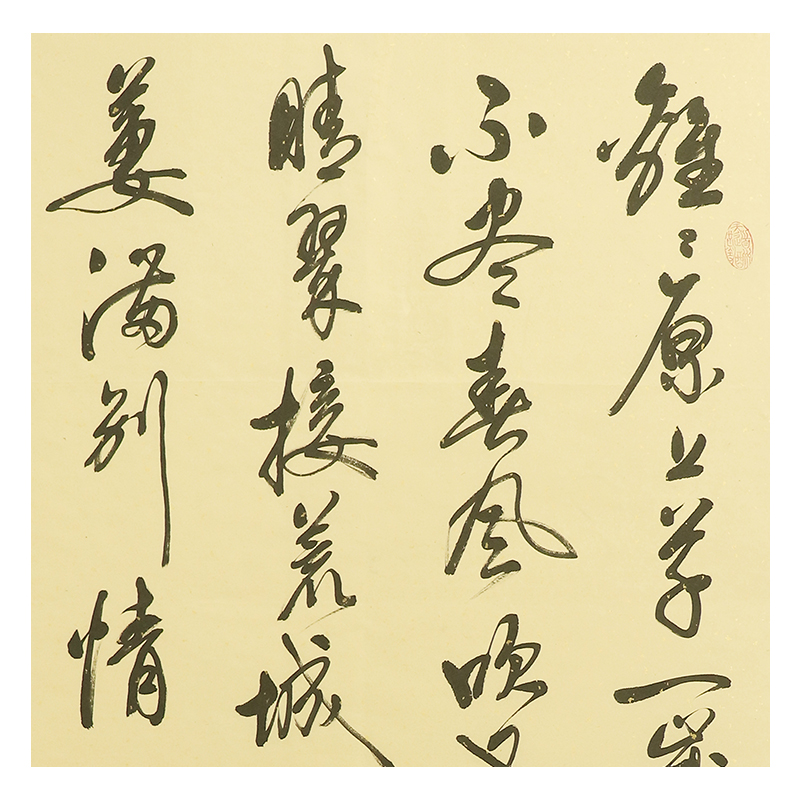 離〻原上草一歲
不盡春風吹又
晴翠接荒城
萋滿别情